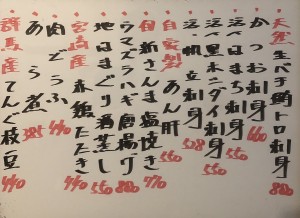 天然生ベチ鮪トロ刺身 880
かつお刺身 660
活〆はまち刺身 550
活〆黒ホンダイ刺身 550
活〆帆立刺身 528
自家製あん肝 550
旬新さんま塩焼き 770
ウマズラハギ唐揚げ 880
地はまぐり酒蒸し 550
宮崎産赤鶏たたき 440
肉どうふ 440
あら煮
群馬産てんぐ枝豆 440